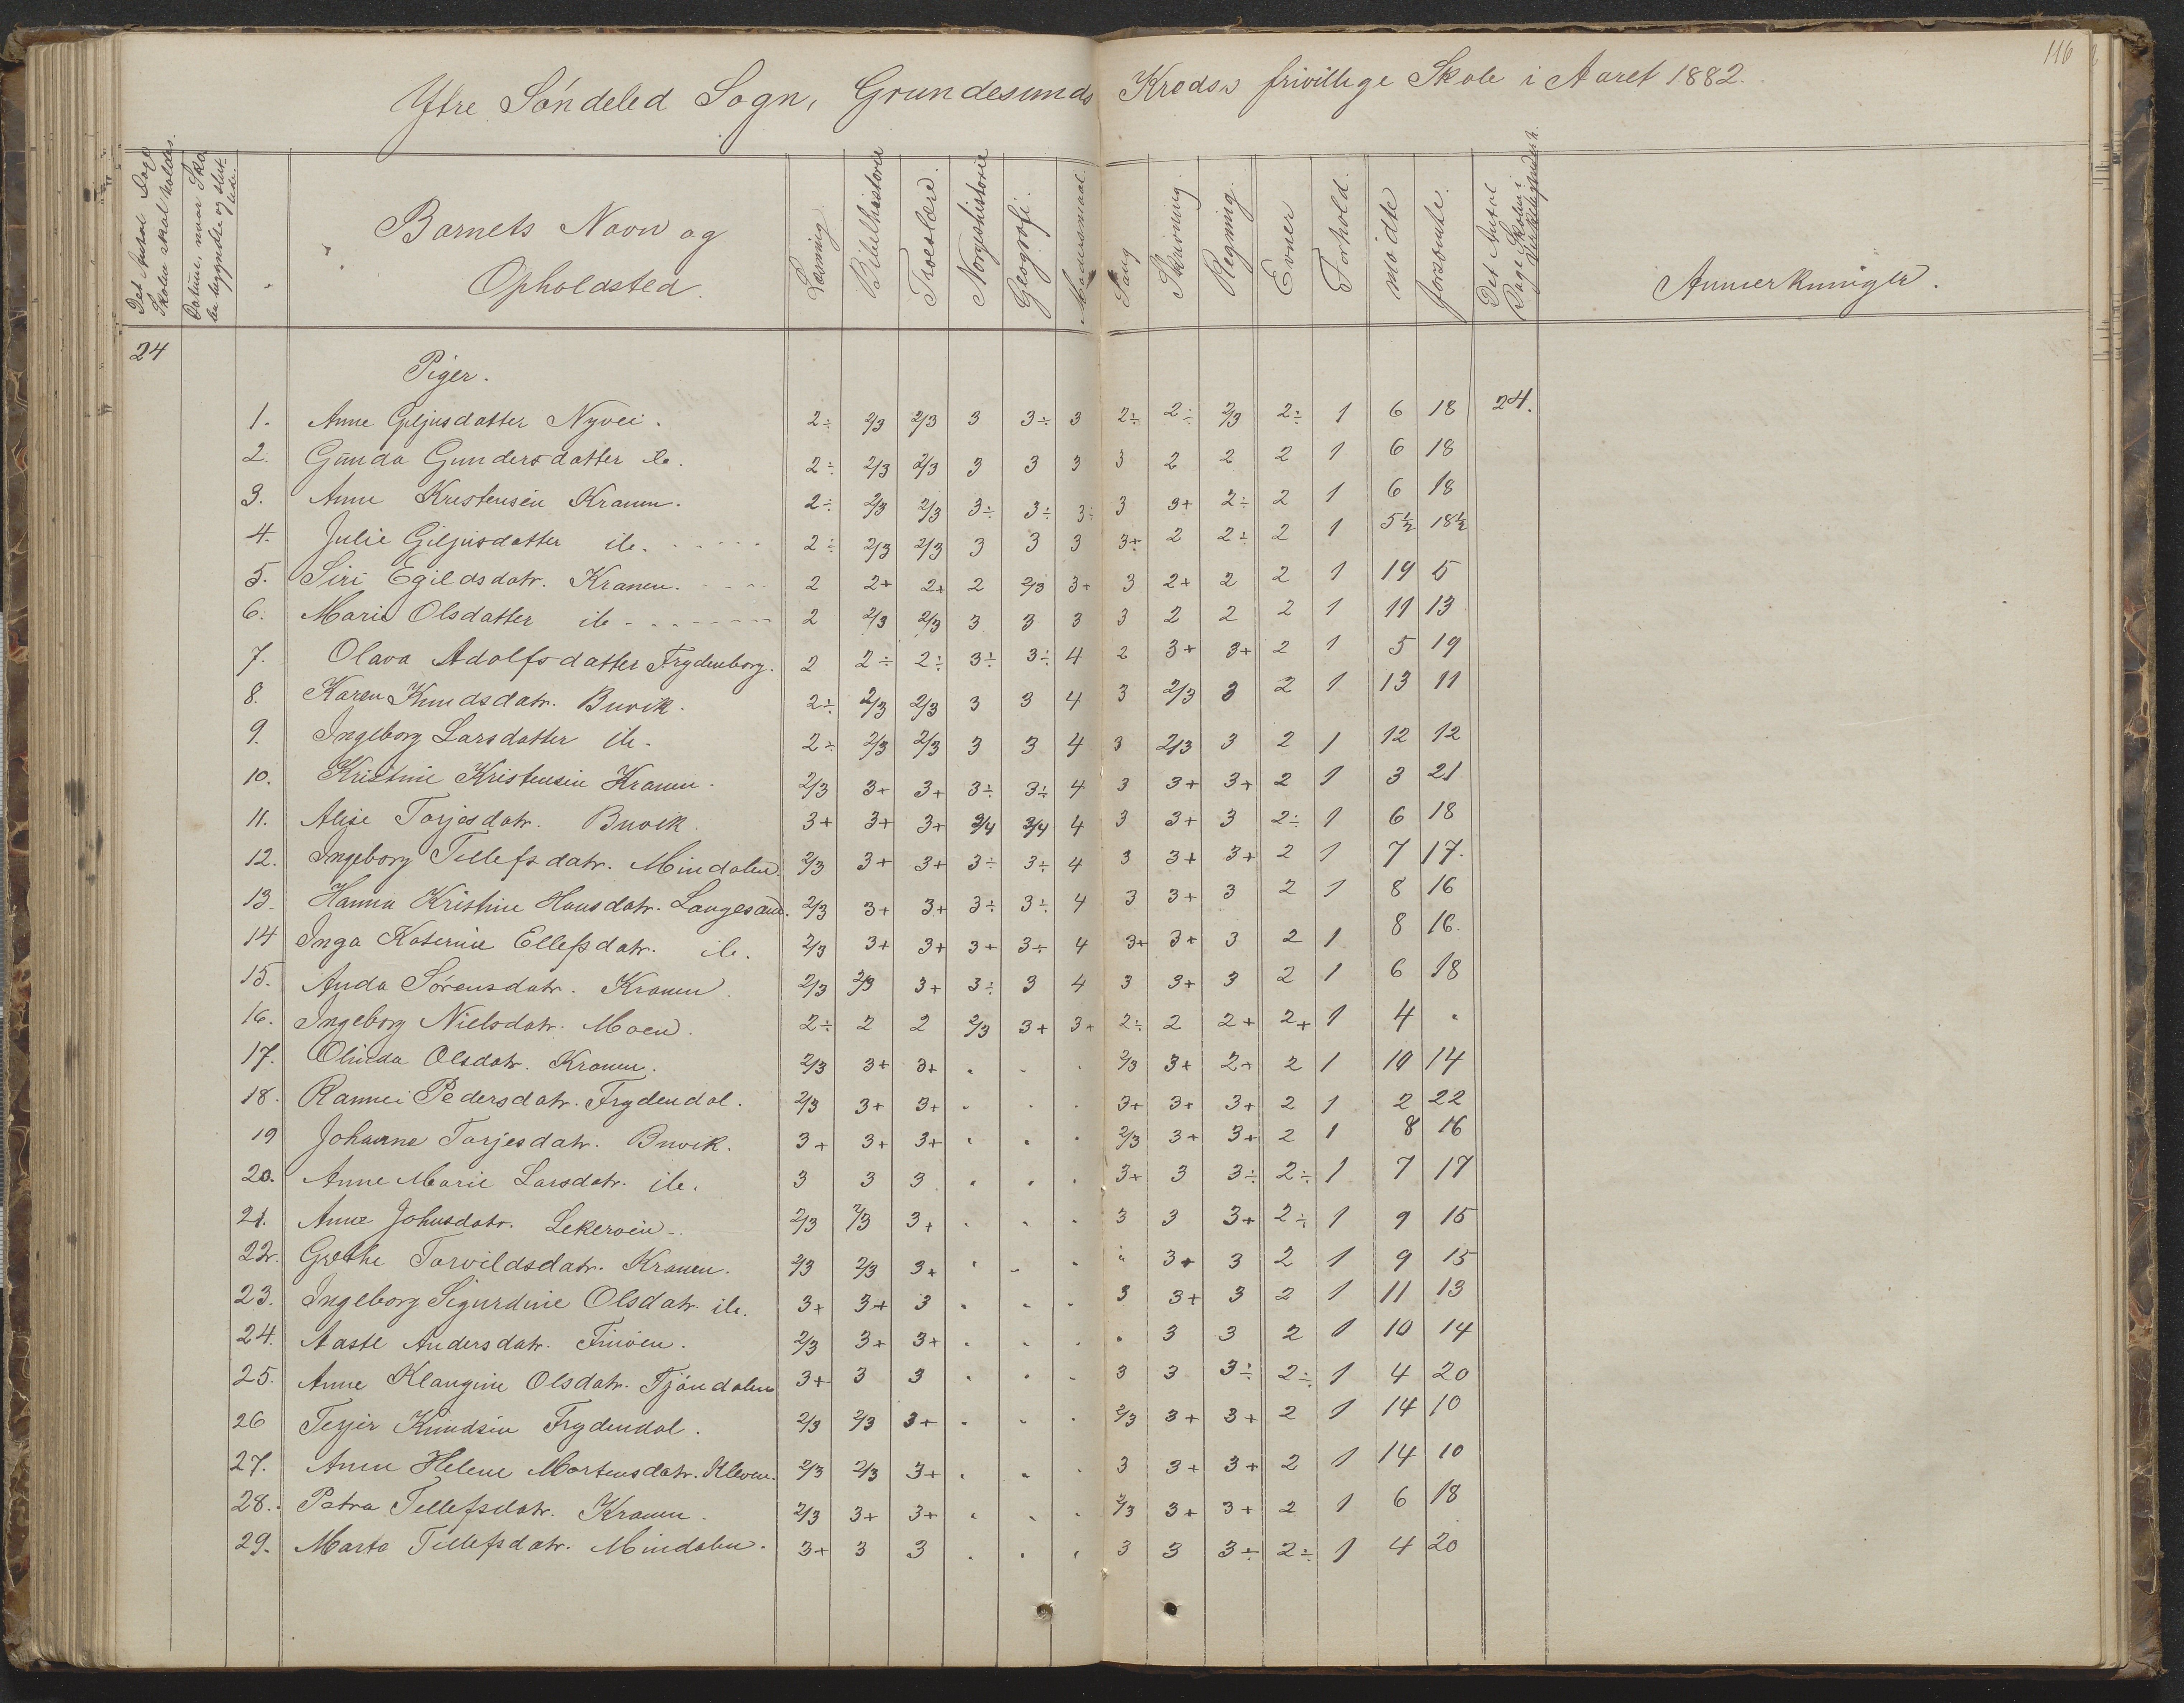 116
Ytre Söndeled Sogn, Grundesunds Krods's frivillige Skole i Aaret 1882.
Det Antal Dage Skolen skal holdes.
Datum, naar Skolen begyndte og sluttede.
Barnets Navn og
Opholdsted.
Læsning.
Bibelhistorie
Troeslære.
Norgeshistorie
Geografi.
Modersmaal
Sang
Skrivning.
Regning.
Evner
Forhold.
mödte
forsömte.
Det Antal Dage Skolen i Virkeligheden h.
Anmerkninger.
24
Piger.
1. Anne Giljusdatter Nyvei. 2÷ 2/3 2/3 3 3÷ 3 2÷ 2÷ 2/3 2÷ 1 6 18 24.
2. Gunda Gundersdatter ib. 2÷ 2/3 2/3 3 3 3 3 2 2 2 1 6 18
3. Anne Kristensen Kranen. 2÷ 2/3 2/3 3÷ 3÷ 3÷ 3 3+ 2÷ 2 1 6 18
4. Julie Giljusdatter ib. 2÷ 2/3 2/3 3 3 3 3+ 2 2÷ 2 1 5½ 18½
5. Siri Egildsdatr. Kranen. 2 2+ 2+ 2 2/3 3+ 3 2+ 2 2 1 19 5
6. Marie Olsdatter ib 2 2/3 2/3 3 3 3 3 2 2 2 1 11 13
7. Olava Adolfsdatter Frydenborg. 2 2÷ 2÷ 3÷ 3÷ 4 2 3+ 3+ 2 1 5 19
8. Karen Knudsdatr. Buvik. 2÷ 2/3 2/3 3 3 4 3 2/3 3 2 1 13 11
9. Ingeborg Larsdatter ib. 2÷ 2/3 2/3 3 3 4 3 2/3 3 2 1 12 12
10. Kristine Kristensen Kranen. 2/3 3+ 3+ 3÷ 3÷ 4 3 3+ 3+ 2 1 3 21
11. Alise Torjesdatr. Buvik 3+ 3+ 3+ 3/4 3/4 4 3 3+ 3 2÷ 1 6 18
12. Ingeborg Tellefsdatr. Mindalen 2/3 3+ 3+ 3÷ 3÷ 4 3 3+ 3+ 2 1 7 17.
13. Hanna Kristine Hansdatr. Langesand. 2/3 3+ 3+ 3÷ 3÷ 4 3 3+ 3 2 1 8 16
14 Inga Katerine Ellefsdatr. ib. 2/3 3+ 3+ 3+ 3÷ 4 3+ 3+ 3 2 1 8 16.
15. Anda Sörensdatr. Kranen. 2/3 2/3 3+ 3÷ 3 4 3 3+ 3 2 1 6 18
16. Ingeborg Nielsdatr. Moen. 2÷ 2 2 2/3 3+ 3+ 2÷ 2 2+ 2+ 1 4 "
17. Olinda Olsdatr. Kranen. 2/3 3+ 3+ " " " 2/3 3+ 2+ 2 1 10 14
18. Rannei Pedersdatr. Frydendal. 2/3 3+ 3+ " " " 3+ 3+ 3+ 2 1 2 22
19 Johanne Torjesdatr. Buvik. 3+ 3+ 3+ " " " 2/3 3+ 3+ 2 1 8 16
20. Anne Marie Larsdatr. ib. 3 3 3 " " " 3+ 3 3÷ 2÷ 1 7 17
21. Anne Johnsdatr. 2/3 2/3 3+ " " " 3 3 3+ 2÷ 1 9 15
22. Grethe Torvildsdatr. Kranen. 2/3 2/3 3+ " " " " 3+ 3 2 1 9 15
23. Ingeborg Sigurdine Olsdatr. ib. 3+ 3+ 3 " " " 3 3+ 3 2 1 11 13
24. Aaste Andersdatr. Finöen. 2/3 3+ 3+ " " " " 3 3 2 1 10 14
25. Anne Klangine Olsdatr. Tjöndalen 3+ 3 3 " " " 3 3 3÷ 2÷ 1 4 20
26 Knudsen Frydendal. 2/3 2/3 3+ " " " 2/3 3+ 3+ 2 1 14 10
27. Anne Helene Mortensdatr. Kleven. 2/3 2/3 3+ " " " 3 3+ 3+ 2 1 14 10
28. Petra Tellefsdatr. Kranen. 2/3 3+ 3+ " " " 2/3 3+ 3+ 2 1 6 18
29. Marta Tellefsdatr. Mindalen. 3+ 3 3 " " " 3 3 3÷ 2÷ 1 4 20